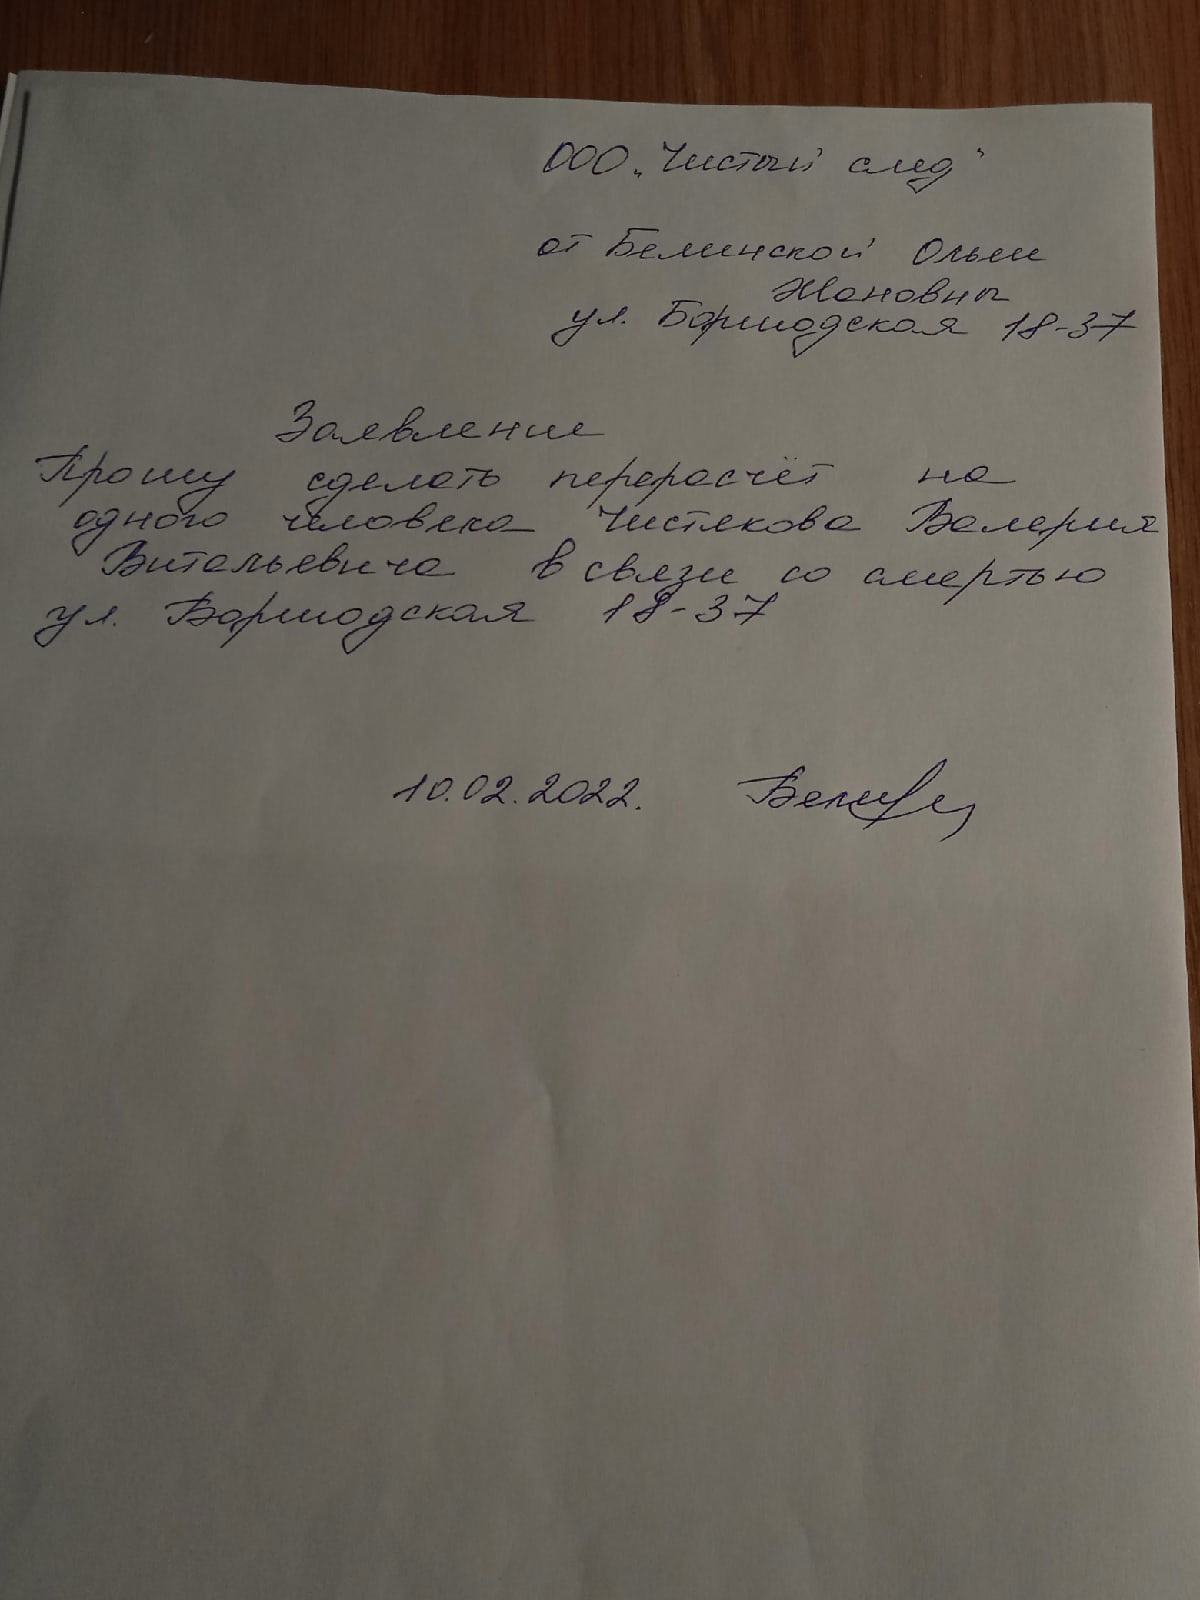 ООО „Чистый след"
от Белинской Ольги
Жановны
ул. Боршодская 18-37
Заявление
Прошу сделать перерасчёт на
одного человека Чистякова Валерия
Витальевича в связи со смертью
ул. Боршодская 18-37
10.02.2022.